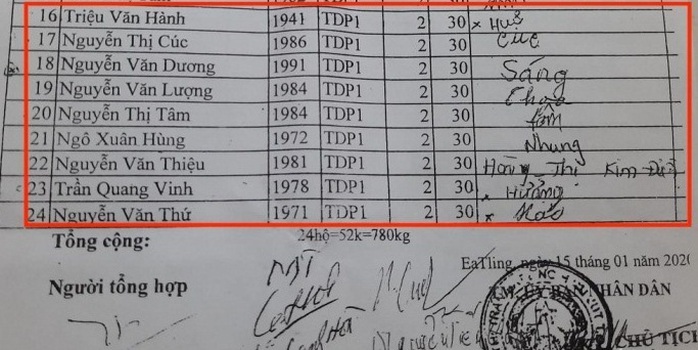 16 Triệu Văn Hành 1941 TDP1 2 30 x Huê
17 Nguyễn Thị Cúc 1986 TDP1 2 30 Cúc
18 Nguyễn Văn Dương 1991 TDP1 2 30 Sáng
19 Nguyễn Văn Lượng 1984 TDP1 2 30
20 Nguyễn Thị Tâm 1984 TDP1 2 30 Tâm
21 Ngô Xuân Hùng 1972 TDP1 2 30 Nhung
22 Nguyễn Văn Thiệu 1981 TDP1 2 30 Hoàng Thị Kim
23 Trần Quang Vinh 1978 TDP1 2 30 x Hường
24 Nguyễn Văn Thứ 1971 TDP1 2 30 x
Tổng cộng: 24hộ=52k=780kg
EaTling, ngày 15 tháng 01 năm 202
Người tổng hợp TM. ỦY BAN NHÂN DÂN
CHỦ TỊCH